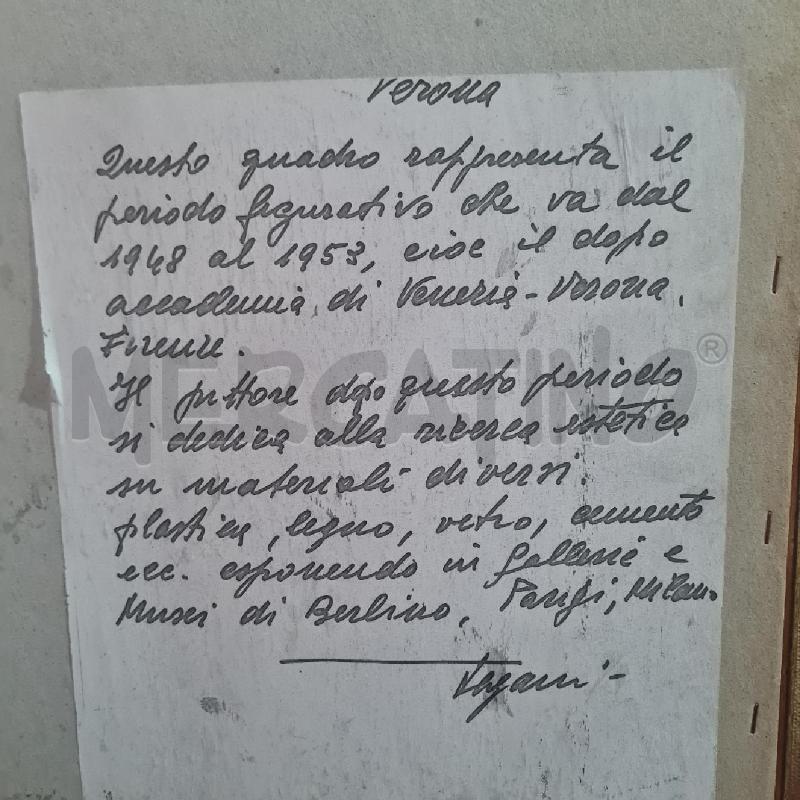 Verona
Questo quadro rappresenta il
periodo figurativo che va dal
1948 al 1953, cioè il dopo
accademia di Venezia-Verona,
Firenze.
MERCATINO®
Il pittore dopo questo periodo
si dedica alla ricerca estetica
su materiali diversi.
plastica, legno, vetro, cemento
ecc. esponendo in Gallerie e
Musei di Berlino, Parigi, Milano